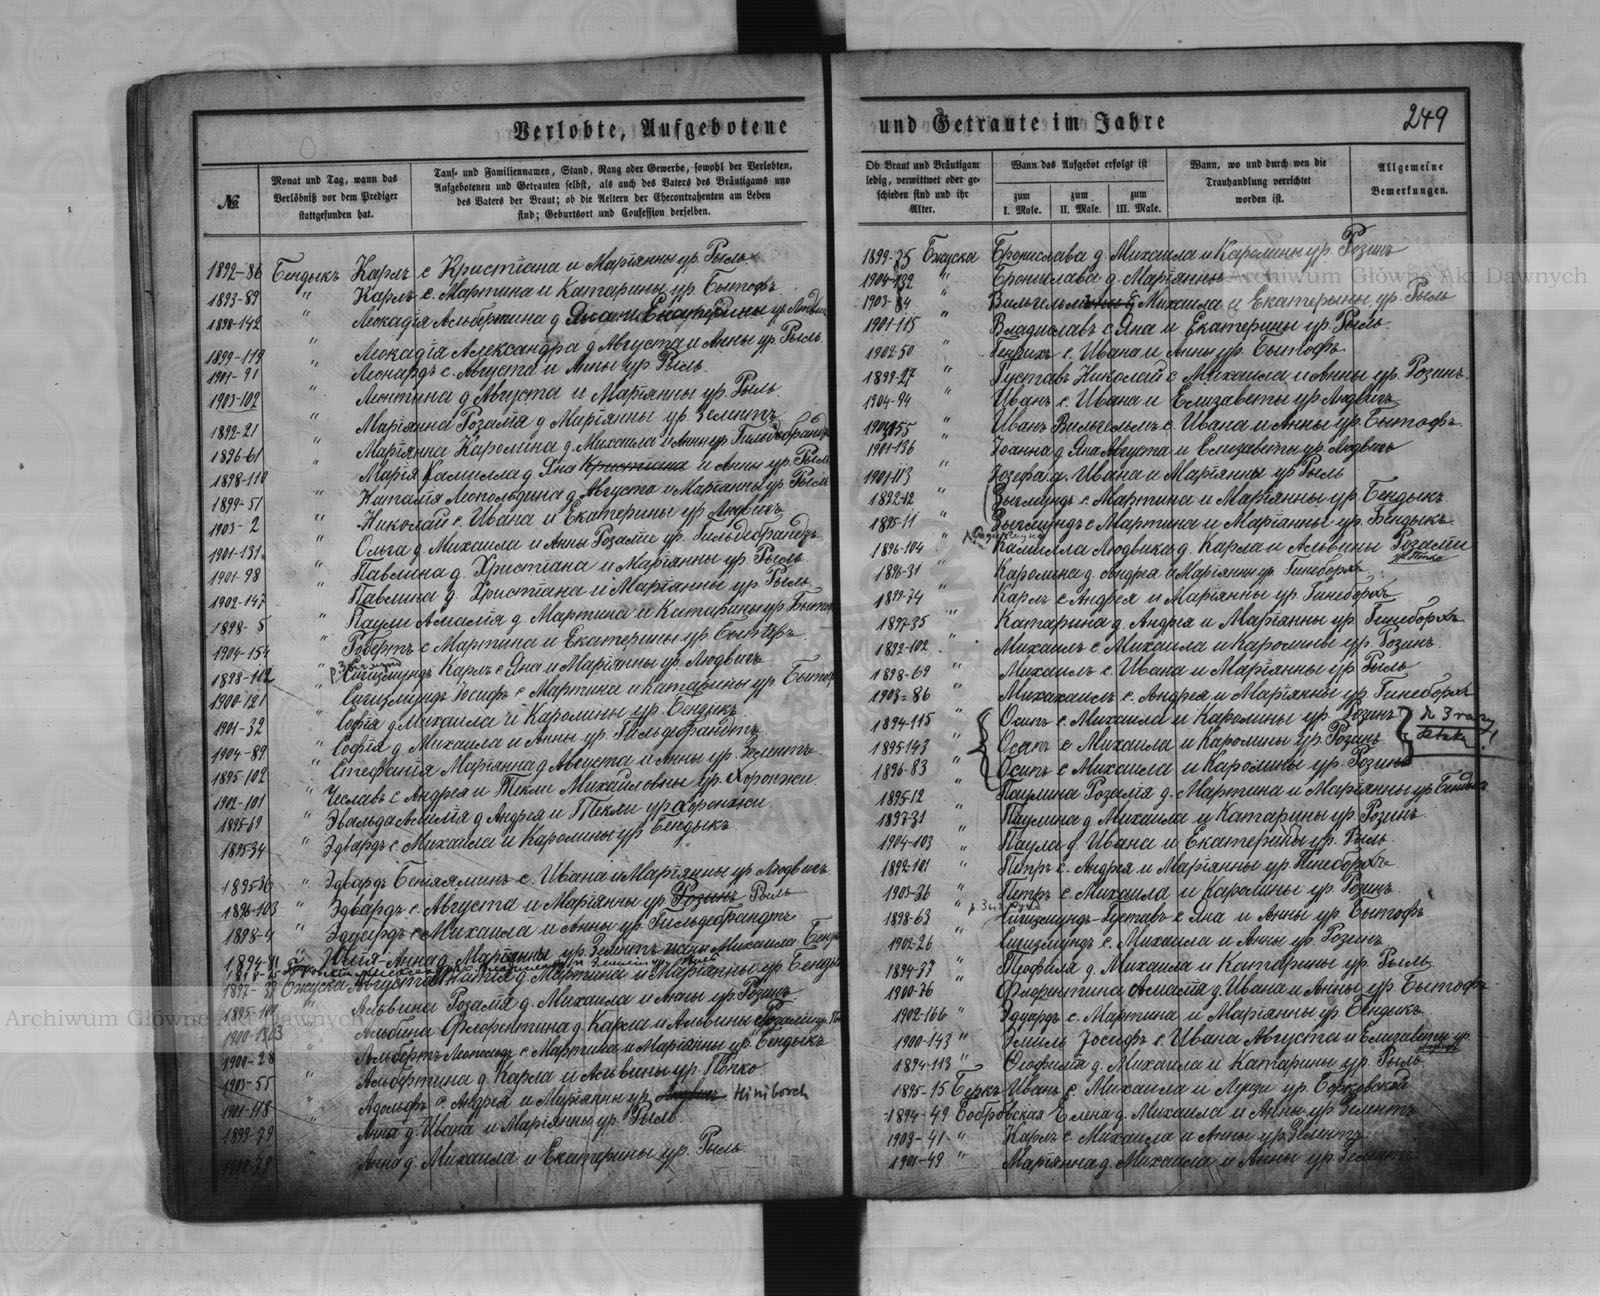 Verlobte, Aufgebotene
und Getraute im Jahre
249
№.
Monat und Tag, wann das Verlöbniß vor dem Prediger stattgefunden hat.
Tauf- und Familiennamen, Stand, Rang oder Gewerbe, sowohl der Verlobten, Aufgebotenen und Getrauten selbst, als auch des Vaters des Bräutigams und des Vaters der Braut; ob die Aeltern der Ehecontrahenten am Leben sind; Geburtsort und Confession derselben.
Ob Braut und Bräutigam ledig, verwittwet oder geschieden sind und ihr Alter.
Wann das Aufgebot erfolgt ist
zum I. Male.
zum II. Male.
zum III. Male.
Wann, wo und durch wen die Trauhandlung verrichtet worden ist.
Allgemeine Bemerkungen.
1892-86 Бендыкъ Карлъ с Кристіана и Маріянны ур. Рыль
1893-89 " Карлъ с. Мартина и Катарины ур. Бытофъ
1898-142 " Леокадія Альбертина д. ур. Людвигъ
1899-119 " Леокадія Александра д Августа и Анны ур. Рыль
1901-91 " Леонардъ с. Августа и Анны ур. Рыль
1903-102 " Леонтина д Августа и Маріянны ур. Рыль
1892-21 " Маріянна Розалія д Маріянны ур. Зелентъ
1896-61 " Маріянна Каролина д. Михаила и Анны ур Гильдебрандъ
1898-110 " Марія Камилла д Яна Кристіана и Анны ур. Рыль
1899-51 " Наталія Леопольдина д Августа и Маріанны ур. Рыль
1903-2 " Николай с. Ивана и Екатерины ур. Людвигъ
1901-131 " Ольга д. Михаила и Анны Розаліи ур. Гильдебрандъ
1901-98 " Павлина д. Христіана и Маріянны ур. Рыль
1902-147 " Павлина д. Христіана и Маріянны ур. Рыль
1898-5 " Паули Амалія д. Мартина и Катарины ур. Бытофъ
1904-154 " Робертъ с Мартина и Екатерины ур. Бытофъ
1898-112 " Сигизмундъ Карлъ с Яна и Маріянны ур. Людвигъ
1900-121 " Сигизмундъ Іосифъ с Мартина и Катарины ур. Бытофъ
1901-32 " Софія д. Михаила и Каролины ур. Бендыкъ
1904-89 " Софія д Михаила и Анны ур. Гильдебрандтъ
1895-102 " Стефанія Маріянна д Августа и Анны ур. Зелентъ
1902-101 " Чеславъ с Андрея и Текли Михайловны ур. Хоронжи
1895-69 " Эвальда Амилія д Андрея и Текли ур Хоронжи
1895-34 " Эдвардъ с Михаила и Каролины ур Бендыкъ
1895-36 " Эдвардъ Беніяминъ с. Ивана и Маріянны ур Людвигъ
1896-103 " Эдвардъ с Августа и Маріянны ур Розинъ Рыль
1898-4 " Эдуардъ с Михаила и Анны ур. Гильдебрандтъ
1897-32 Бжуска Августа д. Мартина и Маріянны ур. Бендыкъ
Альвина Розалія д. Михаила и Анны ур Розинъ
1900-1303 " Альвина Флорентина д. Карла и Альвины
1900-28 " Альбертъ Леопольдъ с. Мартина и Маріянны ур. Бендыкъ
1903-55 " Альбертина д. Карла и Альвины ур. Пепко
1901-118 " Адольфъ с. Андрея и Маріянны ур. Hiniborch
1899-79 " Анна д. Ивана и Маріянны ур. Рыль
1900-79 " Анна д. Михаила и Екатерины ур. Рыль
1899-25 Бжуска Брониславa д. Михаила и Каролины ур. Розинъ
1904-132 " Бронислава д. Маріянны
1903-84 " Михаила и Екатерыны ур. Рыль
1901-115 Владиславъ с Яна и Екатерины ур. Рыль.
1902-50 " Генрихъ с. Ивана и Анны ур. Бытофъ
1899-27 " Густавъ Николай с Михаила и Анны ур. Розинъ
1904-94 " Иванъ с. Ивана и Елизаветы ур Людвигъ
" Иванъ Вильгельмъ с Ивана и Анны ур. Бытофъ.
1901-136 " Іоанна д Яна Августа и Елизаветы ур Людвигъ
1901-113 " Іозефа д. Ивана и Маріянны ур Рыль
1892-12 " Зыгмундъ с. Мартина и Маріянны ур. Бендыкъ
1895-11 " Зыгмундъ с Мартина и Маріянны ур. Бендыкъ.
1896-104 " Камилла Людвика д. Карла и Альвины Розаліи
1896-31 " Каролина д. Андрея и Маріянны ур. Гинеборхъ
1899-74 " Карлъ с Андрея и Маріянны ур. Гинеборхъ
1897-35 " Катарина д. Андрея и Маріянны ур. Гинеборхъ
1892-102 " Михаилъ с Михаила и Каролины ур. Розинъ.
1898-69 " Михаилъ с. Ивана и Маріянны ур Рыль
1903-86 " Михахаилъ с. Андрея и Маріянны ур. Гинеборхъ
1894-115 " Осипъ с Михаила и Каролины ур. Розинъ
1895-143 " Осипъ с Михаила и Каролины ур. Розинъ
1896-83 " Осипъ с Михаила и Каролины ур. Розинъ
1895-12 " Паулина Розалія д. Мартина и Маріянны ур Бендыкъ
1897-31 Паулина д. Михаила и Катарины ур. Розинъ
1904-103 " Паула д. Ивана и Екатерины ур. Рыль
1892-101 " Петръ с. Андрея и Маріянны ур. Гинеборхъ
1903-36 " Петръ с. Михаила и Каролины ур. Розинъ
1898-63 " Сигизмундъ-Густавъ с Яна и Анны ур. Бытофъ
1902-26 " Сигизмундъ с. Михаила и Анны ур. Розинъ
1894-77 " Теофиля д. Михаила и Катарины ур. Рыль
1900-76 " Флорентина Амалія д Ивана и Анны ур. Бытофъ
1902-166 " Эдуардъ с. Мартина и Маріянны ур. Бендыкъ
1900-143 " Эмиль Іосифъ с. Ивана Августа и Елизаветы ур.
1894-113 " Ѳеофилія д. Михаила и Катарины ур. Рыль
1895-15 Беркъ Иванъ с. Михаила и Луизы ур. Берковской
1894-49 Бобровская Елена д. Михаила и Анны ур Зелентъ
1903-41 " Карлъ с. Михаила и Анны ур Зелентъ
1901-49 " Маріянна д. Михаила и Анны ур Зелентъ
Archiwum Główne Akt Dawnych
Archiwum Główne Akt Dawnych